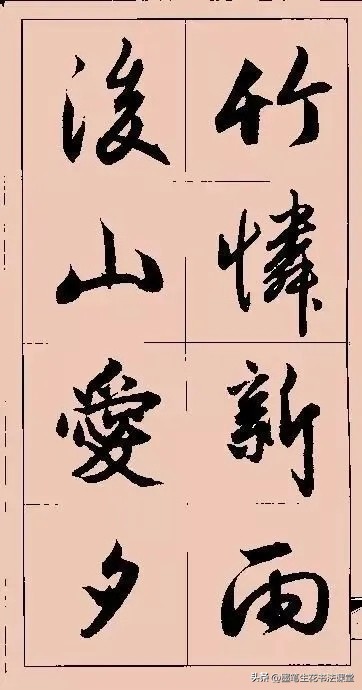 竹憐新雨
後山愛夕
头条 @墨笔生花书法课堂